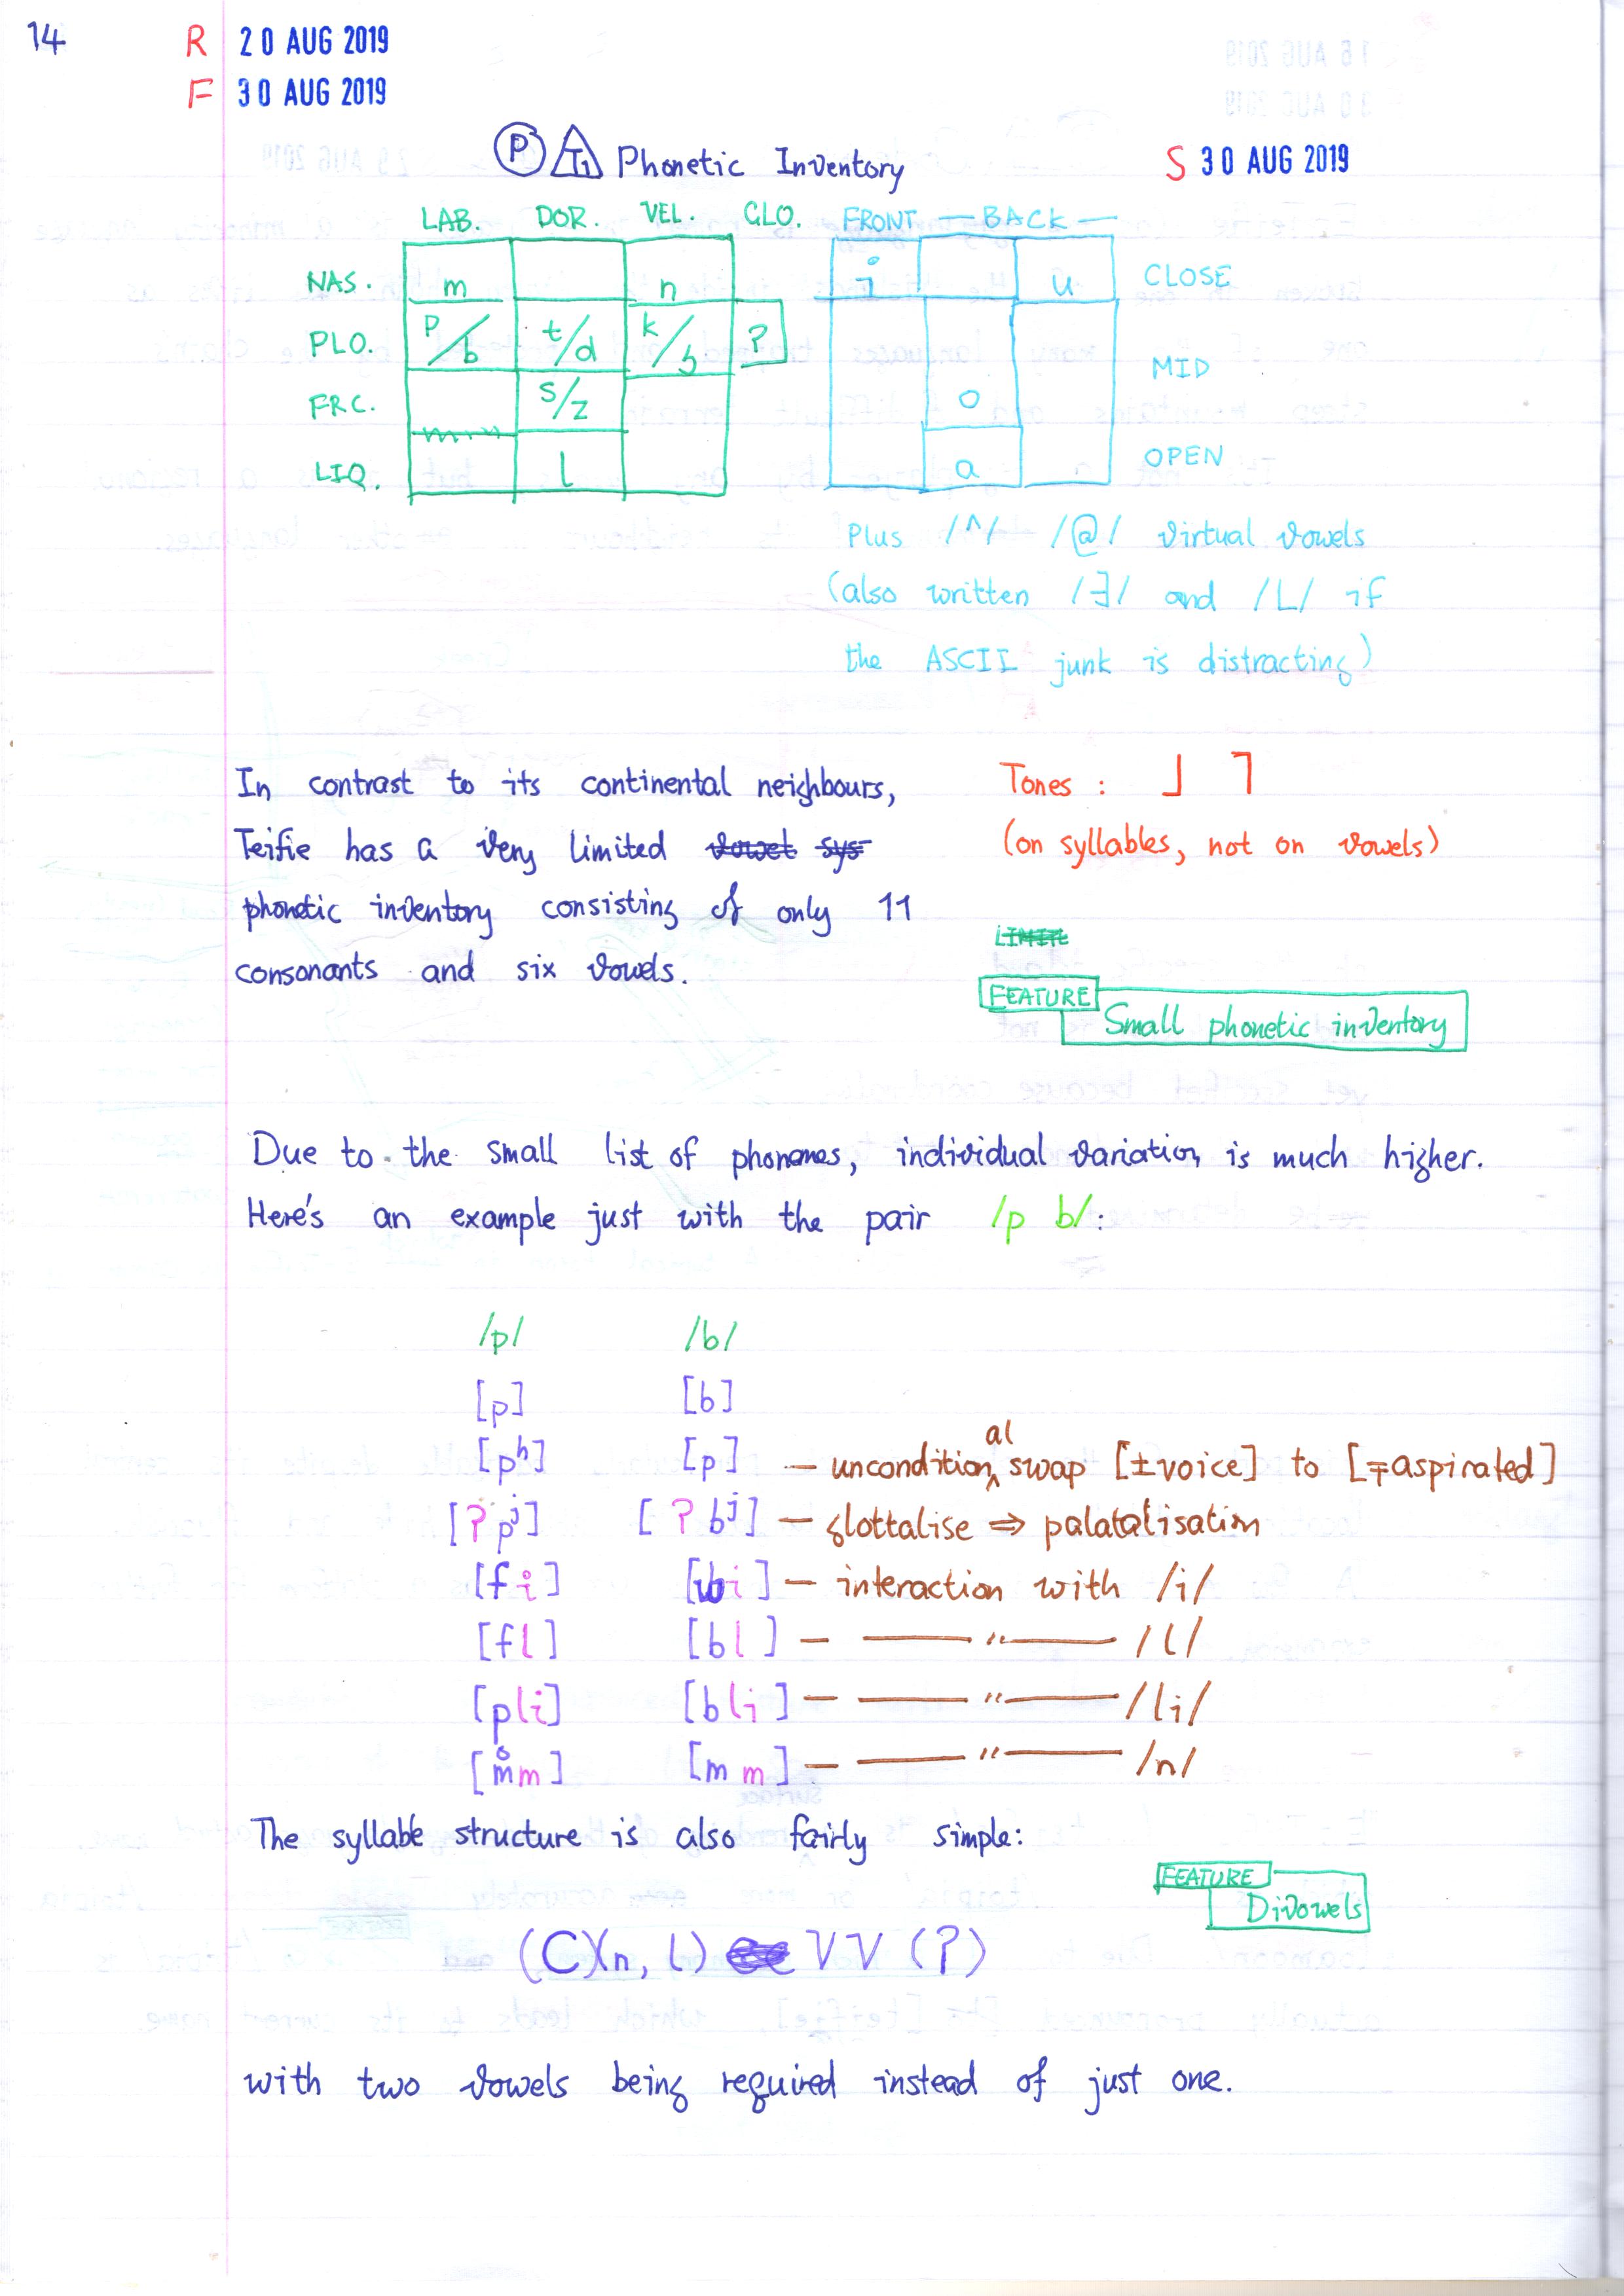 14
R 20 AUG 2019
F 30 AUG 2019
P T1 Phonetic Inventory
S 30 AUG 2019
LAB. DOR. VEL. GLO. FRONT — BACK —
NAS. m n i u CLOSE
PLO. p/b t/d k/g ʔ MID
FRC. s/z o
LIQ. l a OPEN
Plus /^/ /@/ virtual vowels
(also written /∃/ and /L/ if
the ASCII junk is distracting)
In contrast to its continental neighbours,
Teifie has a very limited vowel sys
phonetic inventory consisting of only 11
consonants and six vowels.
Tones : ˩ ˥
(on syllables, not on vowels)
FEATURE
Small phonetic inventory
Due to the small list of phonemes, individual variation is much higher.
Here's an example just with the pair /p b/:
/p/ /b/
[p] [b]
[pʰ] [p] — unconditional swap [±voice] to [∓aspirated]
[ʔpʲ] [ʔbʲ] — glottalise ⇒ palatalisation
[fi] [i] — interaction with /i/
[fl] [bl] — —— " —— /l/
[pli] [bli] — —— " —— /li/
[m̊m] [mm] — —— " —— /n/
The syllable structure is also fairly simple:
FEATURE
Divowels
(C)(n, l) VV (ʔ)
with two vowels being required instead of just one.